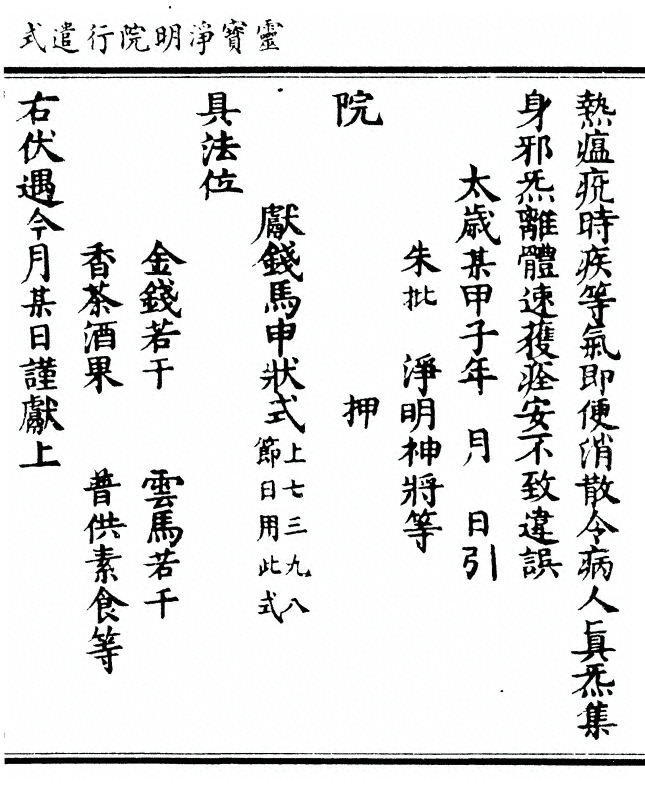 靈寶淨明院行遣式
熱瘟疫時疾等氣即便消散令病人真炁集
身邪炁離體速獲痊安不致違誤
太歲某甲子年　月　日引
朱批　淨明神將等
院　押
獻錢馬申狀式上七三九八節日用此式
具法位
金錢若干　雲馬若干
香茶酒果　普供素食等
右伏遇今月某日謹獻上